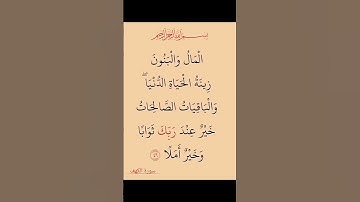 بسم الله الرحمن الرحيم
الْمَالُ وَالْبَنُونَ
زِينَةُ الْحَيَاةِ الدُّنْيَا ۖ
وَالْبَاقِيَاتُ الصَّالِحَاتُ
خَيْرٌ عِنْدَ رَبِّكَ ثَوَابًا
وَخَيْرٌ أَمَلًا ٤٦
سورة الكهف